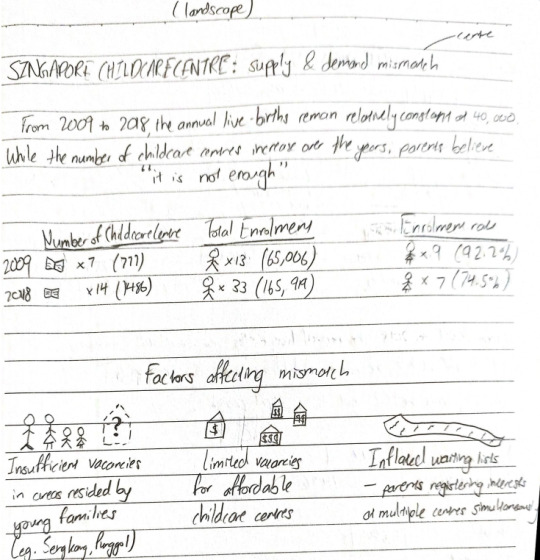 (landscape)
centre
SINGAPORE CHILDCARE CENTRE: supply & demand mismatch
From 2009 to 2018, the annual live-births remain relatively constant at 40,000
While the number of childcare centres increase over the years, parents believe
"it is not enough"
Number of Childcare Centre Total Enrolment Enrolment rate
2009 x7 (777) x13 (65,006) x 9 (92.2%)
2018 x14 (1486) x 33 (165, x 7 (74.5%)
Factors affecting mismatch
?
$
$$
$$
$$$
Insufficient vacancies Limited vacancies Inflated waiting lists
in areas resided by for affordable – parents registering interests
young families childcare centres at multiple centres simultaneously
(eg. Sengkang, Punggol)